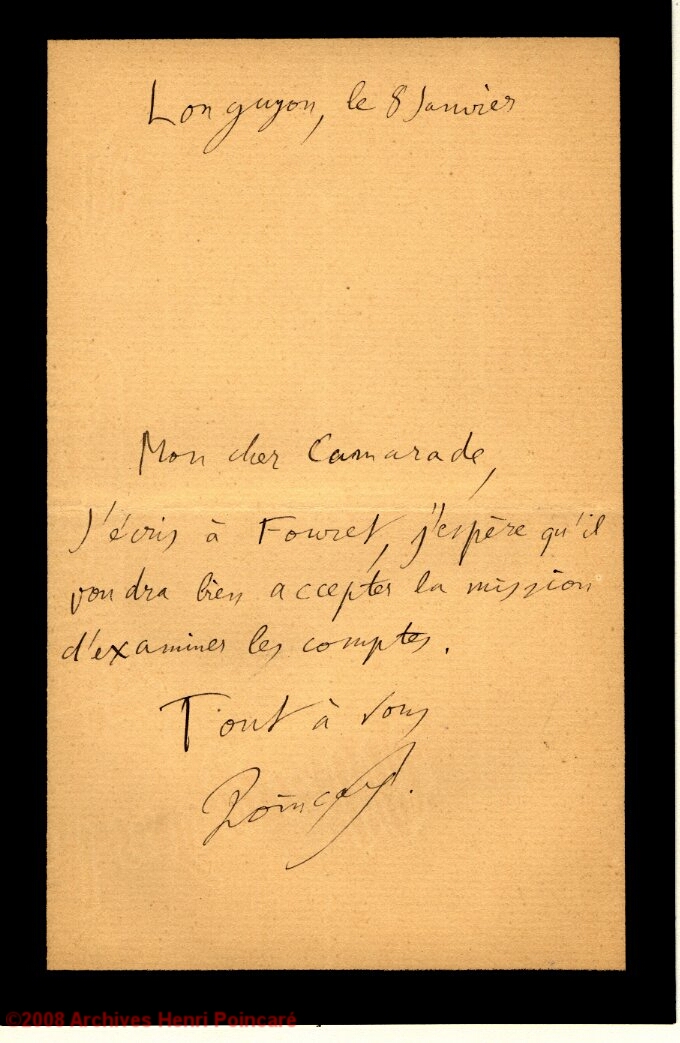 Longuyon, le 8 Janvier
Mon cher Camarade,
J'écris à Fouret, j'espère qu'il
voudra bien accepter la mission
d'examiner les comptes.
Tout à vous
Poincaré.
©2008 Archives Henri Poincaré